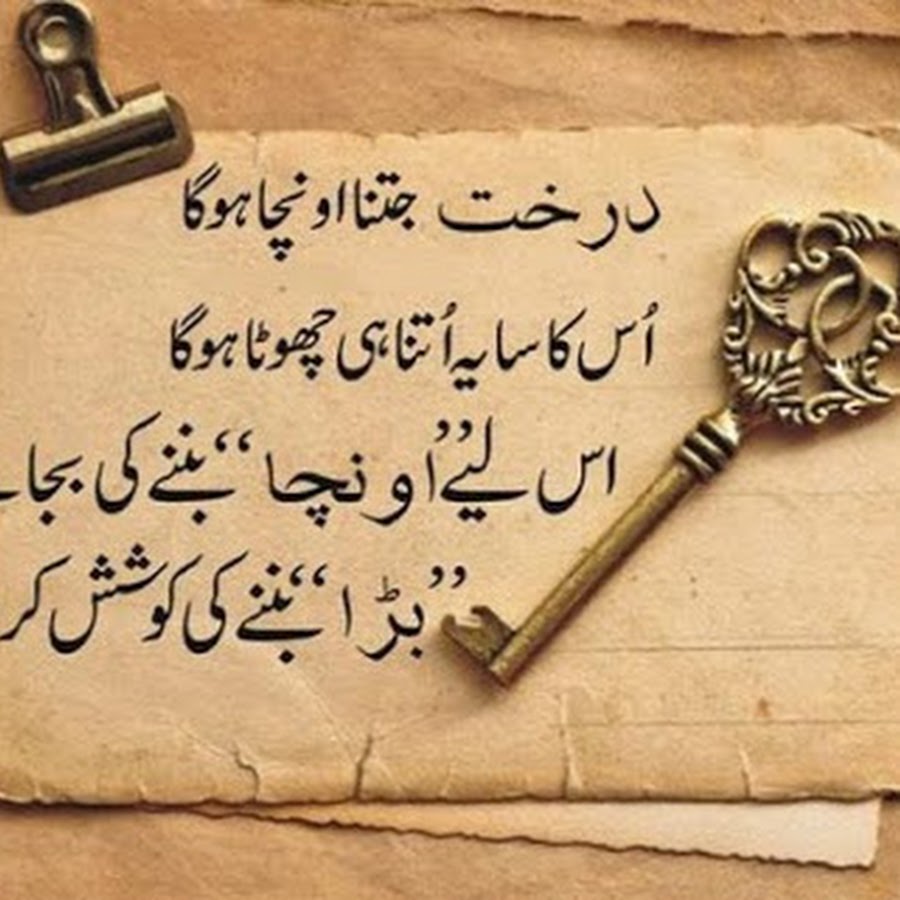 درخت جتنا اونچا ہوگا
اُس کا سایہ اُتنا ہی چھوٹا ہوگا
اس لیے ”اونچا“ بننے کی بجا
”بڑا“ بننے کی کوشش کر